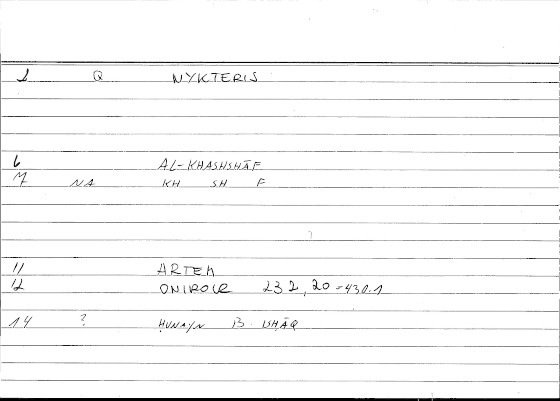 1 Q NYKTERIS
6 AL-KHASHSHĀF
7 NA KH SH F
11 ARTEM
12 ONIROCR 232,20=430.1
14 ? ḤUNAYN B ISḤĀQ